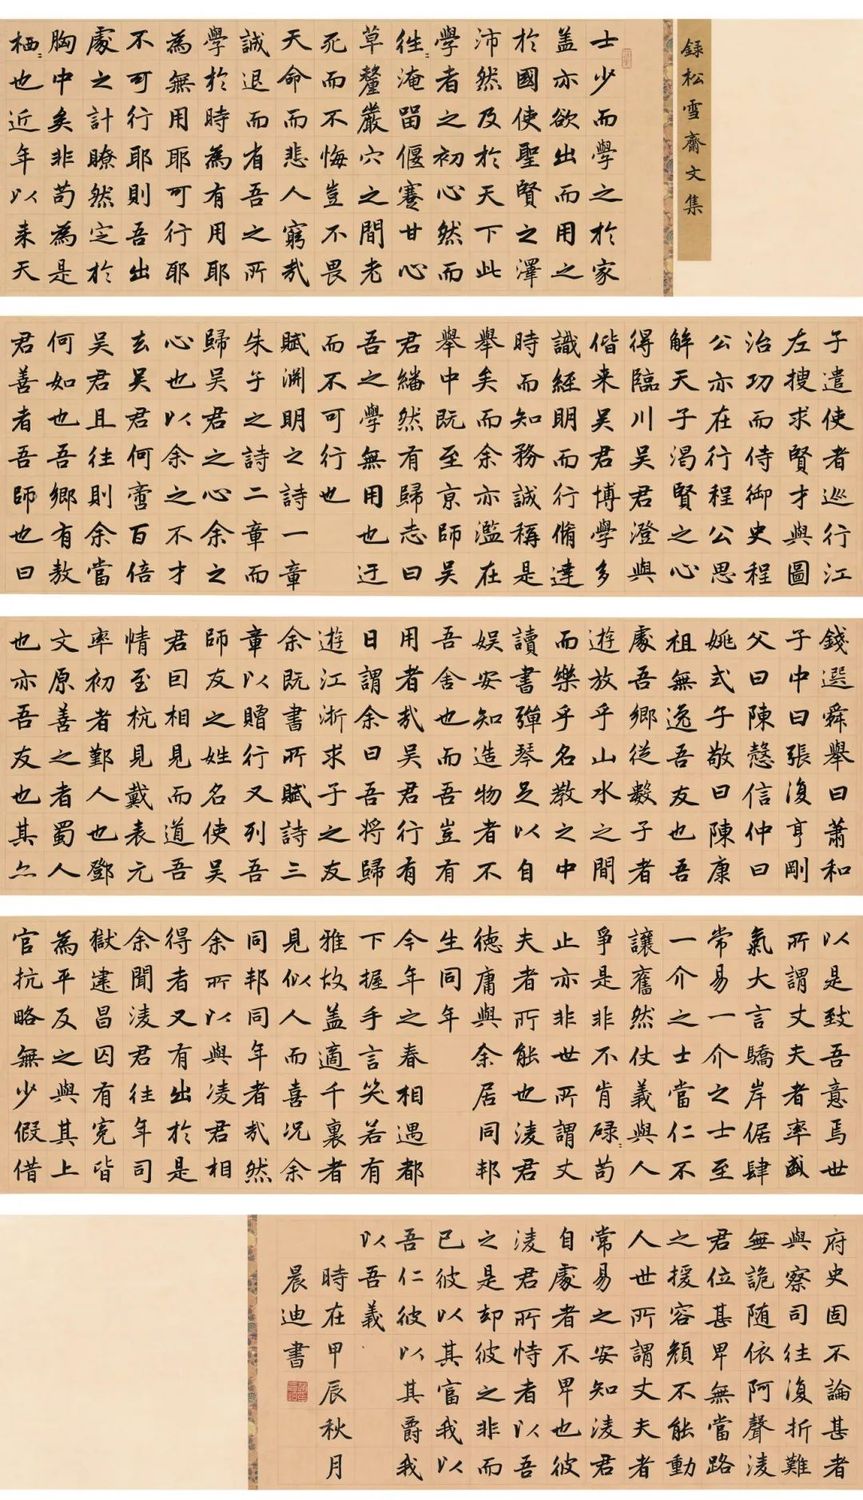 録松雪齋文集
士少而學之於家
盖亦欲出而用之
於國使聖賢之澤
沛然及於天下此
學者之初心然而
徃〻淹畱偃蹇甘心
草釐巖穴之間老
死而不悔豈不畏
天命而悲人窮㢤
誠退而省吾之所
學於時為有用耶
為無用耶可行耶
不可行耶則吾出
處之計瞭然定於
胸中矣非苟為是
栖〻也近年以来天
子遣使者巡行江
左搜求賢才與圖
治功而侍御史程
公亦在行程公思
解天子渴賢之心
得臨川吴君澄與
偕来吴君博學多
識經明而行脩達
時而知務誠稱是
舉矣而余亦濫在
舉中既至京師吴
君繙然有歸志曰
吾之學無用也迂
而不可行也
賦渊明之詩一章
朱子之詩二章而
歸吴君之心余之
心也以余之不才
去吴君何啻百倍
吴君且往則余當
何如也吾鄉有敖
君善者吾師也曰
錢選舜舉曰蕭和
子中曰張復亨剛
父曰陳慤信仲曰
姚式子敬曰陳康
祖無逸吾友也吾
處吾鄉從數子者
遊放乎山水之間
而樂乎名教之中
讀書彈琴足以自
娱安知造物者不
吾舍也而吾豈有
用者㢤吴君行有
日謂余曰吾將歸
遊江浙求子之友
余既書所賦詩三
章以贈行又列吾
師友之姓名使吴
君囙相見而道吾
情至杭見戴表元
率初者鄞人也鄧
文原善之者蜀人
也亦吾友也其亦
以是致吾意焉世
所謂丈夫者率盛
氣大言驕岸倨肆
常易一介之士至
一介之士當仁不
讓奮然仗義與人
爭是非不肯碌〻苟
止亦非世所謂丈
夫者所能也淩君
徳庸與余居同邦
生同年
今年之春相遇都
下握手言笑若有
雅故盖適千裏者
見似人而喜况余
同邦同年者㢤然
余所以與凌君相
得者又有出於是
余聞淩君往年司
獄逮昌囚有寃皆
為平反之與其上
官抗略無少假借
府史固不論甚者
與察司往復折難
無詭随依阿聲淩
君位甚卑無當路
之援容頟不能動
人世所謂丈夫者
常易之安知淩君
自處者不卑也彼
淩君所恃者以吾
之是却彼之非而
已彼以其富我以
吾仁彼以其爵我
以吾義
時在甲辰秋月
晨迪書